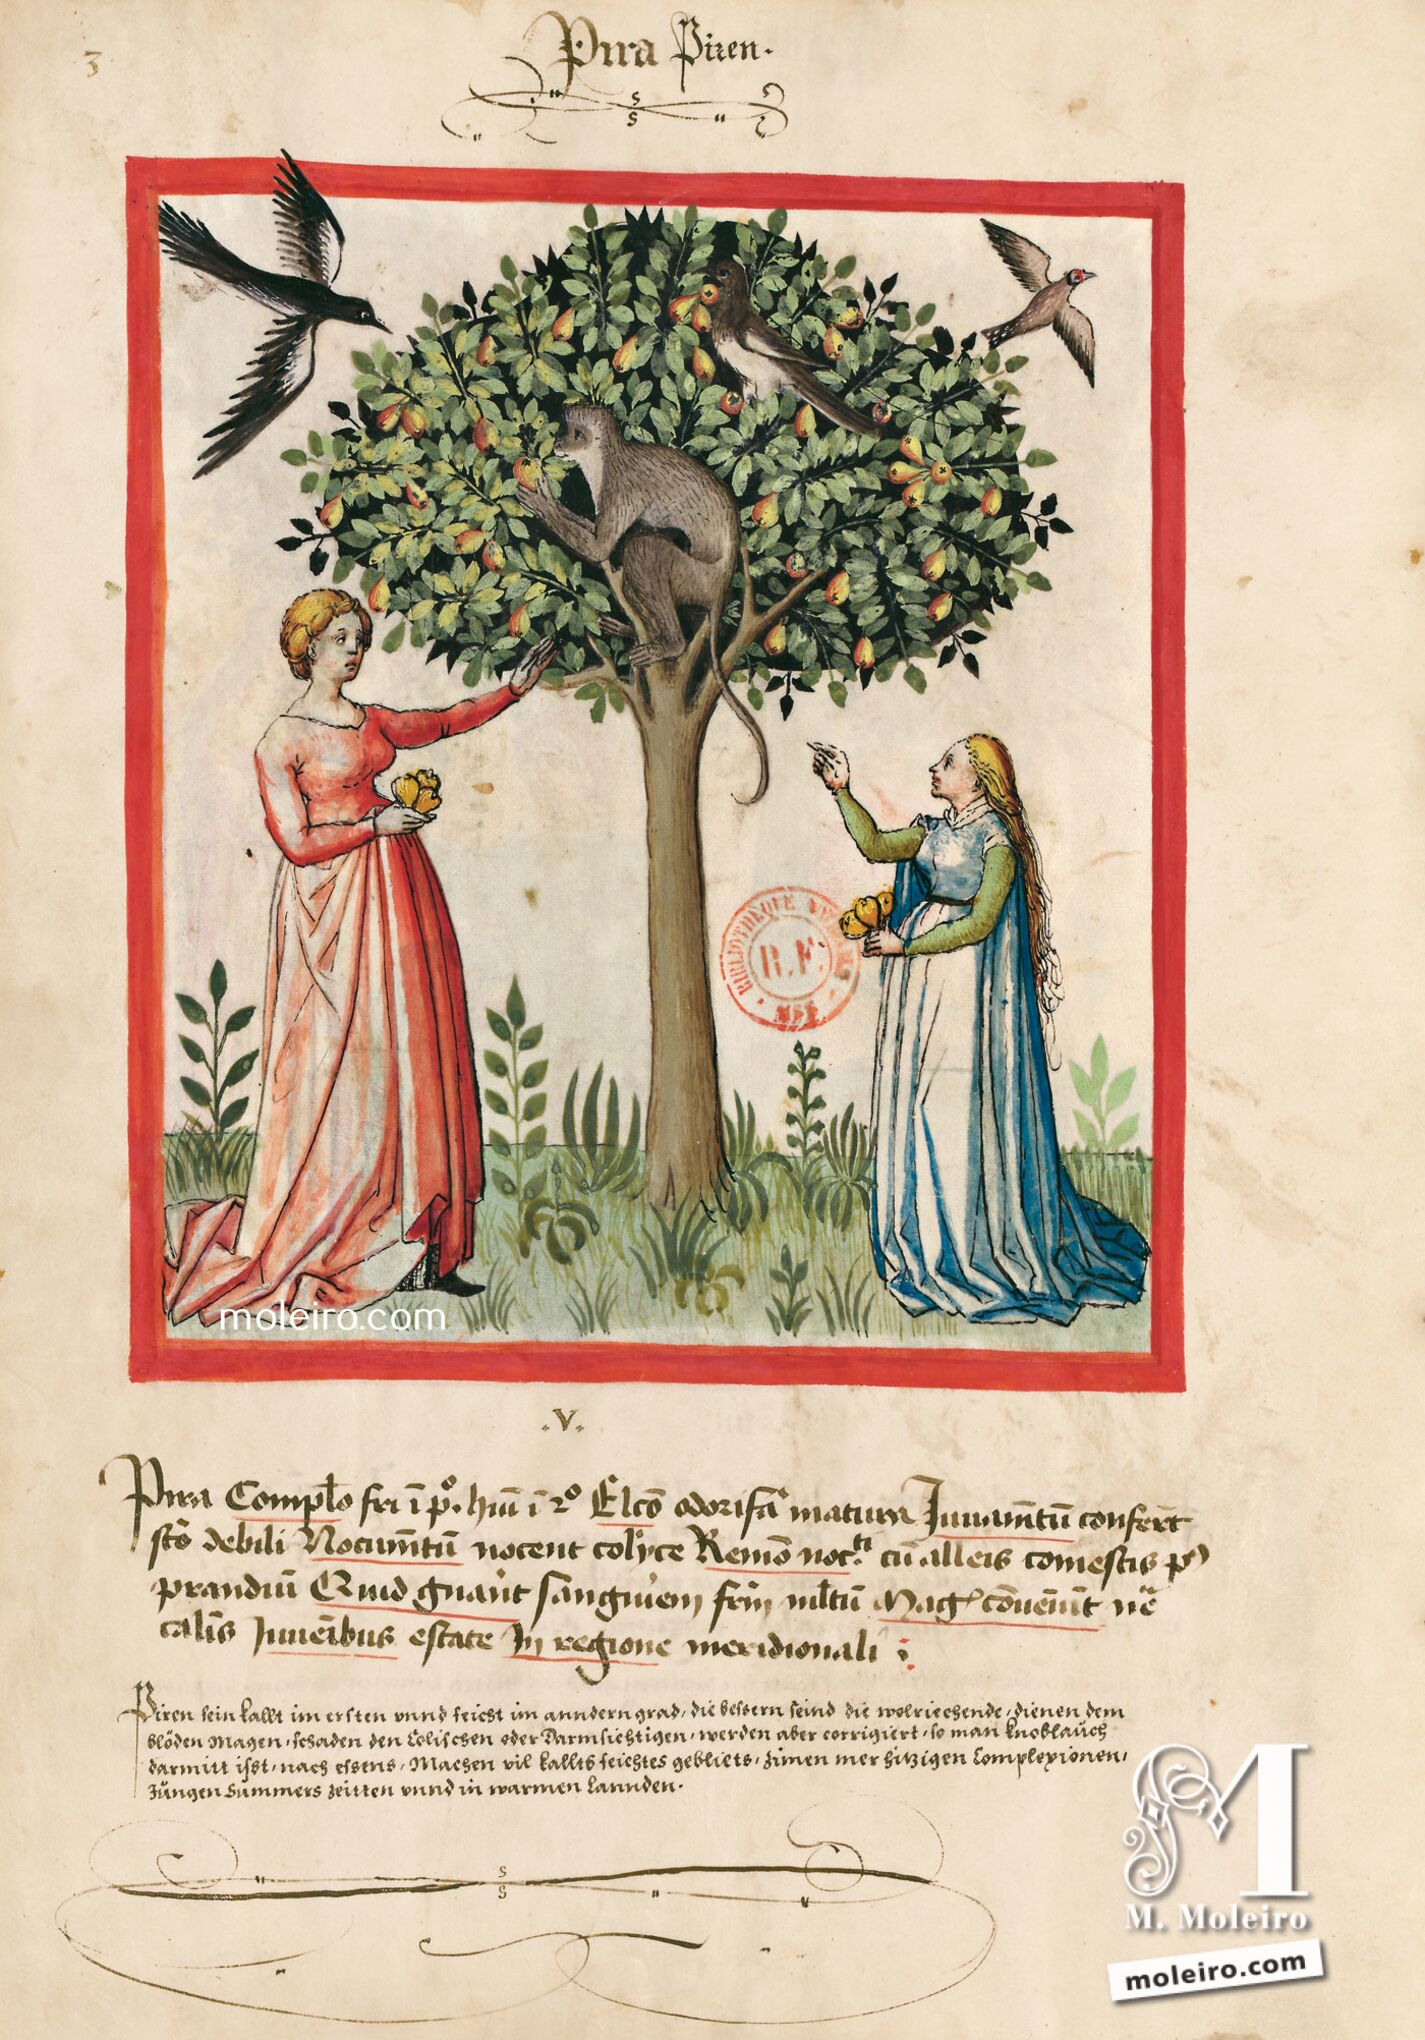 3
Pira Piren.
BIBLIOTHEQUE
R.F.
MSS
moleiro.com
.V.
Pira Complo fri i pº. hui i 2º Elco odorifa matura Juuamtu confert
sto debili Nocumtu nocent colyce Remo noc.ti cu alleis comestis p
prandiu Quid gnant sanguiem frim mltu Mag conueniut
calis Juueibus estate In regione meridionali
Piren sein kallt im ersten vnnd feicht im anndern grad, die bessern seind die wolriechende, dienen dem
blöden Magen, schaden den Colischen oder Darmsichtigen, werden aber corrigiert, so man knoblauch
darmitt isst, nach essens, Machen vil kallts feichtes gebliets, Zimen mer hitzigen Complexionen,
Jungen Summers zeitten vnnd in warmen Lannden.
M
M. Moleiro
moleiro.com